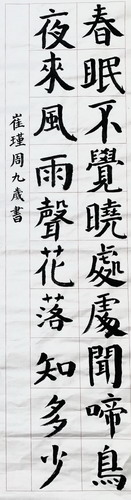 春眠不覺曉處處聞啼鳥
夜來風雨聲花落知多少
崔瑾周九歲書